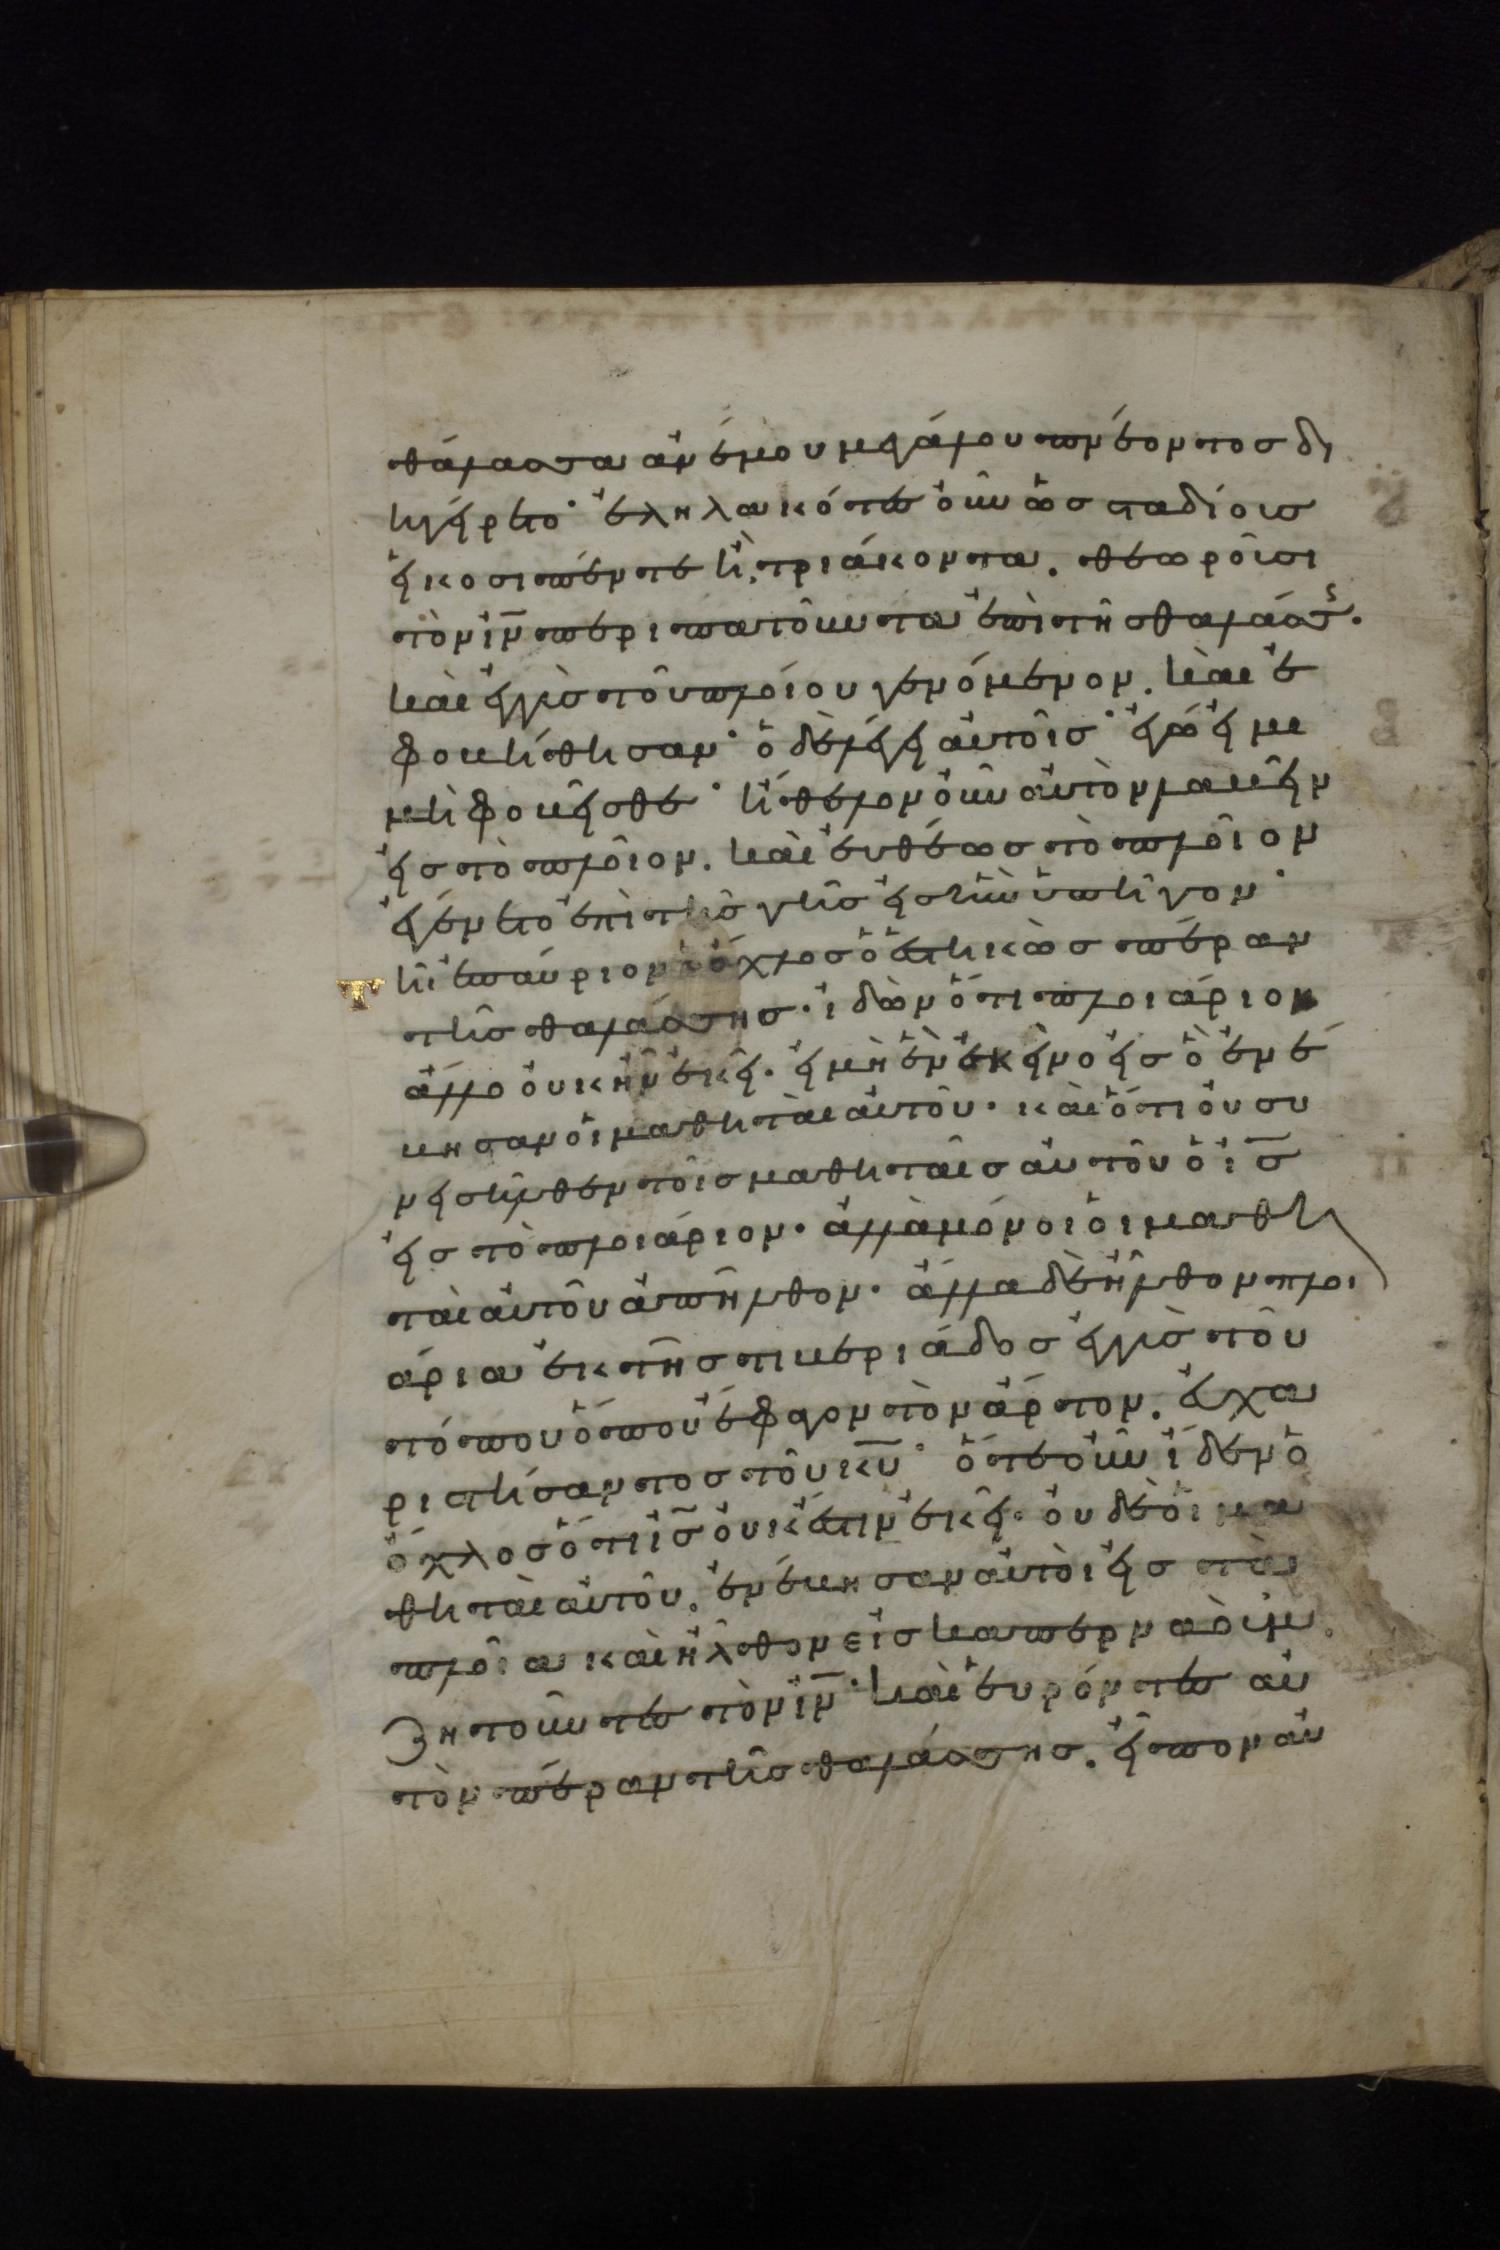 θάλασσα ἀνέμου μεγάλου πνέοντος δι
ηγείρετο· ἐληλακότες οὖν ὡς σταδίοις
εἰκοσιπέντε ἢ τριάκοντα. θεωροῦσι
τὸν ἰν̅ περιπατοῦντα ἐπὶ τῆς θαλάσσης.
καὶ ἐγγὺς τοῦ πλοίου γενόμενον. καὶ ἐ
φοβήθησαν· ὁ δὲ λέγει αὐτοῖς· ἐγώ εἰμι
μὴ φοβεῖσθε· ἤθελον οὖν αὐτὸν λαβεῖν
εἰς τὸ πλοῖον. καὶ εὐθέως τὸ πλοῖον
ἐγένετο ἐπὶ τῆς γῆς εἰς ἣν ὑπῆγον·
Τῆ ἐπαύριον ὁ ὄχλος ὁ ἑστηκὼς πέραν
τῆς θαλάσσης. ἰδὼν ὅτι πλοιάριον
ἄλλο οὐκ ἦν ἐκεῖ. εἰ μὴ ἓν ἐκεῖνο εἰς ὃ ἐνέ
βησαν οἱ μαθηταὶ αὐτοῦ. καὶ ὅτι οὐ συ
νεισῆλθεν τοῖς μαθηταῖς αὐτοῦ ὁ ἰς̅
εἰς τὸ πλοιάριον. ἀλλὰ μόνοι οἱ μαθη
ταὶ αὐτοῦ ἀπῆλθον. ἄλλα δὲ ἦλθον πλοι
άρια ἐκ τῆς τιβεριάδος ἐγγὺς τοῦ
τόπου ὅπου ἔφαγον τὸν ἄρτον. εὐχα
ριστήσαντος τοῦ κυ̅· ὅτε οὖν ἴδεν ὁ
ὄχλος ὅτι ἰς̅ οὐκ ἔστιν ἐκεῖ. οὐδὲ οἱ μα
θηταὶ αὐτοῦ. ἐνέβησαν αὐτοὶ εἰς τὰ
πλοῖα καὶ ἦλθον εἰς καπερναοὺμ
ζητοῦντες τὸν ἰν̅· καὶ εὑρόντες αὐ
τὸν πέραν τῆς θαλάσσης. εἶπον αὐ